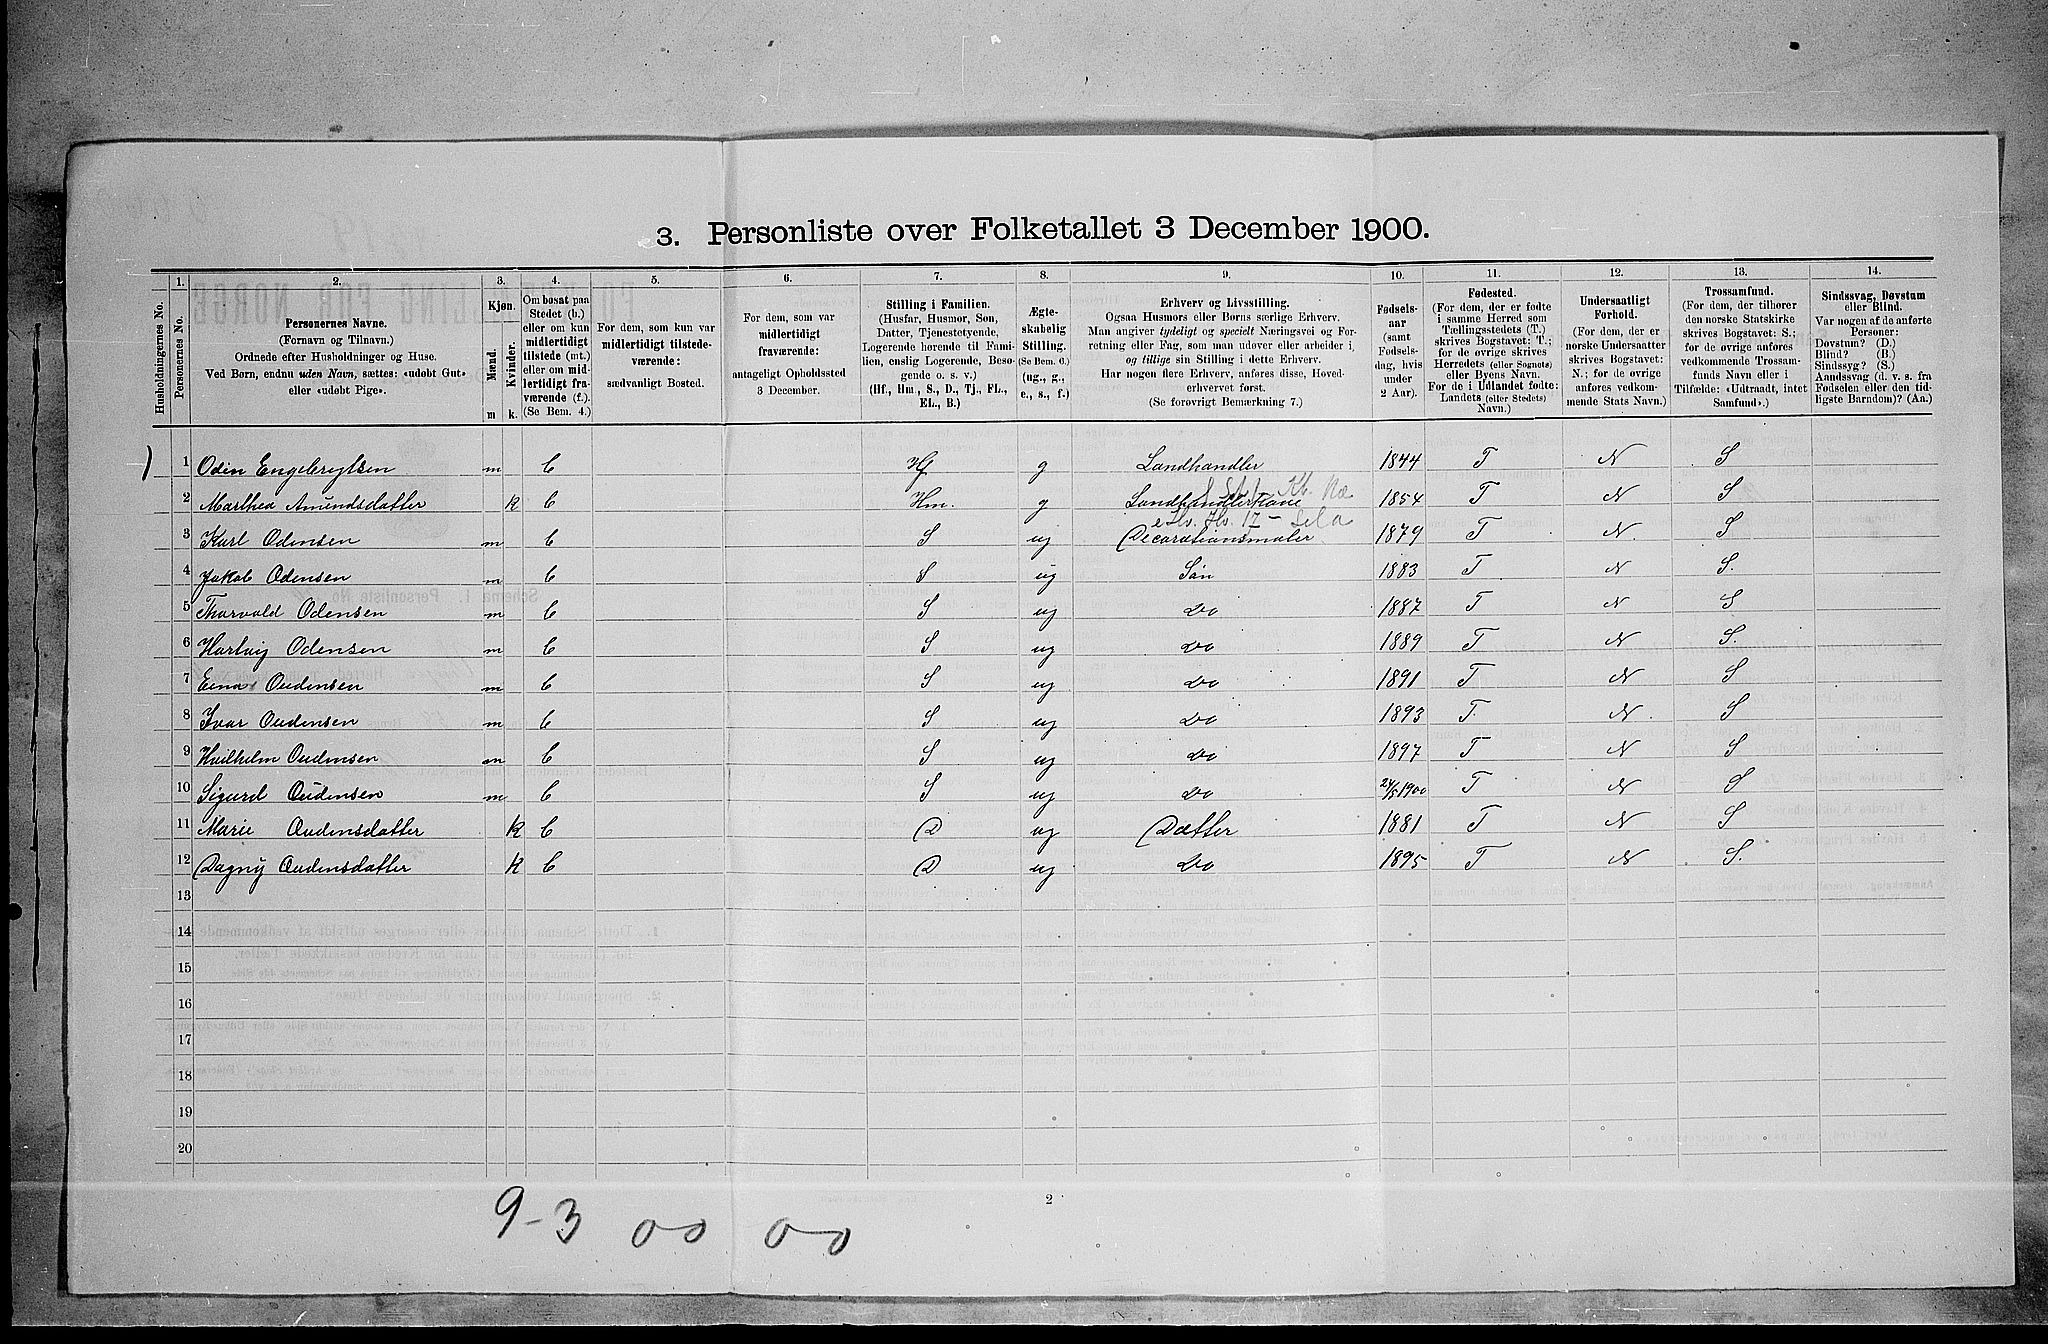 3. Personliste over Folketallet 3 December 1900.
Husholdningernes No.
1. Personernes No.
2. Personernes Navne.
(Fornavn og Tilnavn.)
Ordnede efter Husholdninger og Huse.
Ved Børn, endnu uden Navn, sættes: «udøbt Gut»
eller «udøbt Pige».
3. Kjøn.
Mænd. Kvinder.
m k.
4. Om bosat paa
Stedet (b.)
eller om kun
midlertidigt
tilstede (mt.)
eller om mid-
lertidigt fra-
værende (f.).
(Se Bem. 4.)
5. For dem, som kun var
midlertidigt tilstede-
værende:
sædvanligt Bosted.
6. For dem, som var
midlertidigt
fraværende:
antageligt Opholdssted
3 December.
7. Stilling i Familien.
(Husfar, Husmor, Søn,
Datter, Tjenestetyende,
Logerende hørende til Fami-
lien, enslig Logerende, Besø-
gende o. s. v.)
(Hf., Hm., S., D., Tj., FL.,
EL., B.)
8. Ægte-
skabelig
Stilling.
(Se Bem. 6.)
(ug., g.,
e., s., f.)
9. Erhverv og Livsstilling.
Ogsaa Husmors eller Børns særlige Erhverv.
Man angiver tydeligt og specielt Næringsvei og For-
retning eller Fag, som man udøver eller arbeider i,
og tillige sin Stilling i dette Erhverv.
Har nogen flere Erhverv, anføres disse, Hoved-
erhvervet først.
(Se forøvrigt Bemærkning 7.)
10. Fødsels-
aar
(samt
Fødsels-
dag, hvis
under
2 Aar).
11. Fødested.
(For dem, der er fødte
i samme Herred som
Tællingsstedets (T.)
skrives Bogstavet: T.;
for de øvrige skrives
Herredets (eller Sognets)
eller Byens Navn.
For de i Udlandet fødte:
Landets (eller Stedets)
Navn.)
12. Undersaatligt
Forhold.
(For dem, der er
norske Undersaatter
skrives Bogstavet:
N.; for de øvrige
anføres vedkom-
mende Stats Navn.)
13. Trossamfund.
(For dem, der tilhører
den norske Statskirke
skrives Bogstavet: S.;
for de øvrige anføres
vedkommende Trossam-
funds Navn eller i
Tilfælde: «Udtraadt, intet
Samfund».)
14. Sindssvag, Døvstum
eller Blind.
Var nogen af de anførte
Personer:
Døvstum? (D.)
Blind? (B.)
Sindssyg? (S.)
Aandssvag (d. v. s. fra
Fødselen eller den tid-
ligste Barndom)? (Aa.)
1 Odin Engebrigtsen m b Hf g Landhandler 1844 T N S
2 Marthea Amundsdatter k b Hm. g Landhandlerkone 1854 T N S
3 Karl Odensen m b S ug Decorationsmaler 1879 T N. S
4 Jakob Odensen m b S ug Søn 1883 T N S.
5 Thorvald Odensen m b S ug Do 1887 T N S
6 Hartvig Odensen m b S ug Do 1889 T N S.
7 Einar Oudensen m b S ug Do 1891 T N S
8 Ivar Oudensen m b S ug Do 1893 T. N. S
9 Hvilhelm Oudensen m b S ug Do 1897 T N S
10 Sigurd Oudensen m b S ug Do 24/5 1900 T N S
11 Marie Oudensdatter k b D ug Datter 1881 T N S
12 Dagny Oudensdatter k b D ug Do 1895 T N S.
13
14
15
16
17
18
19
20
2
9-3 00 00